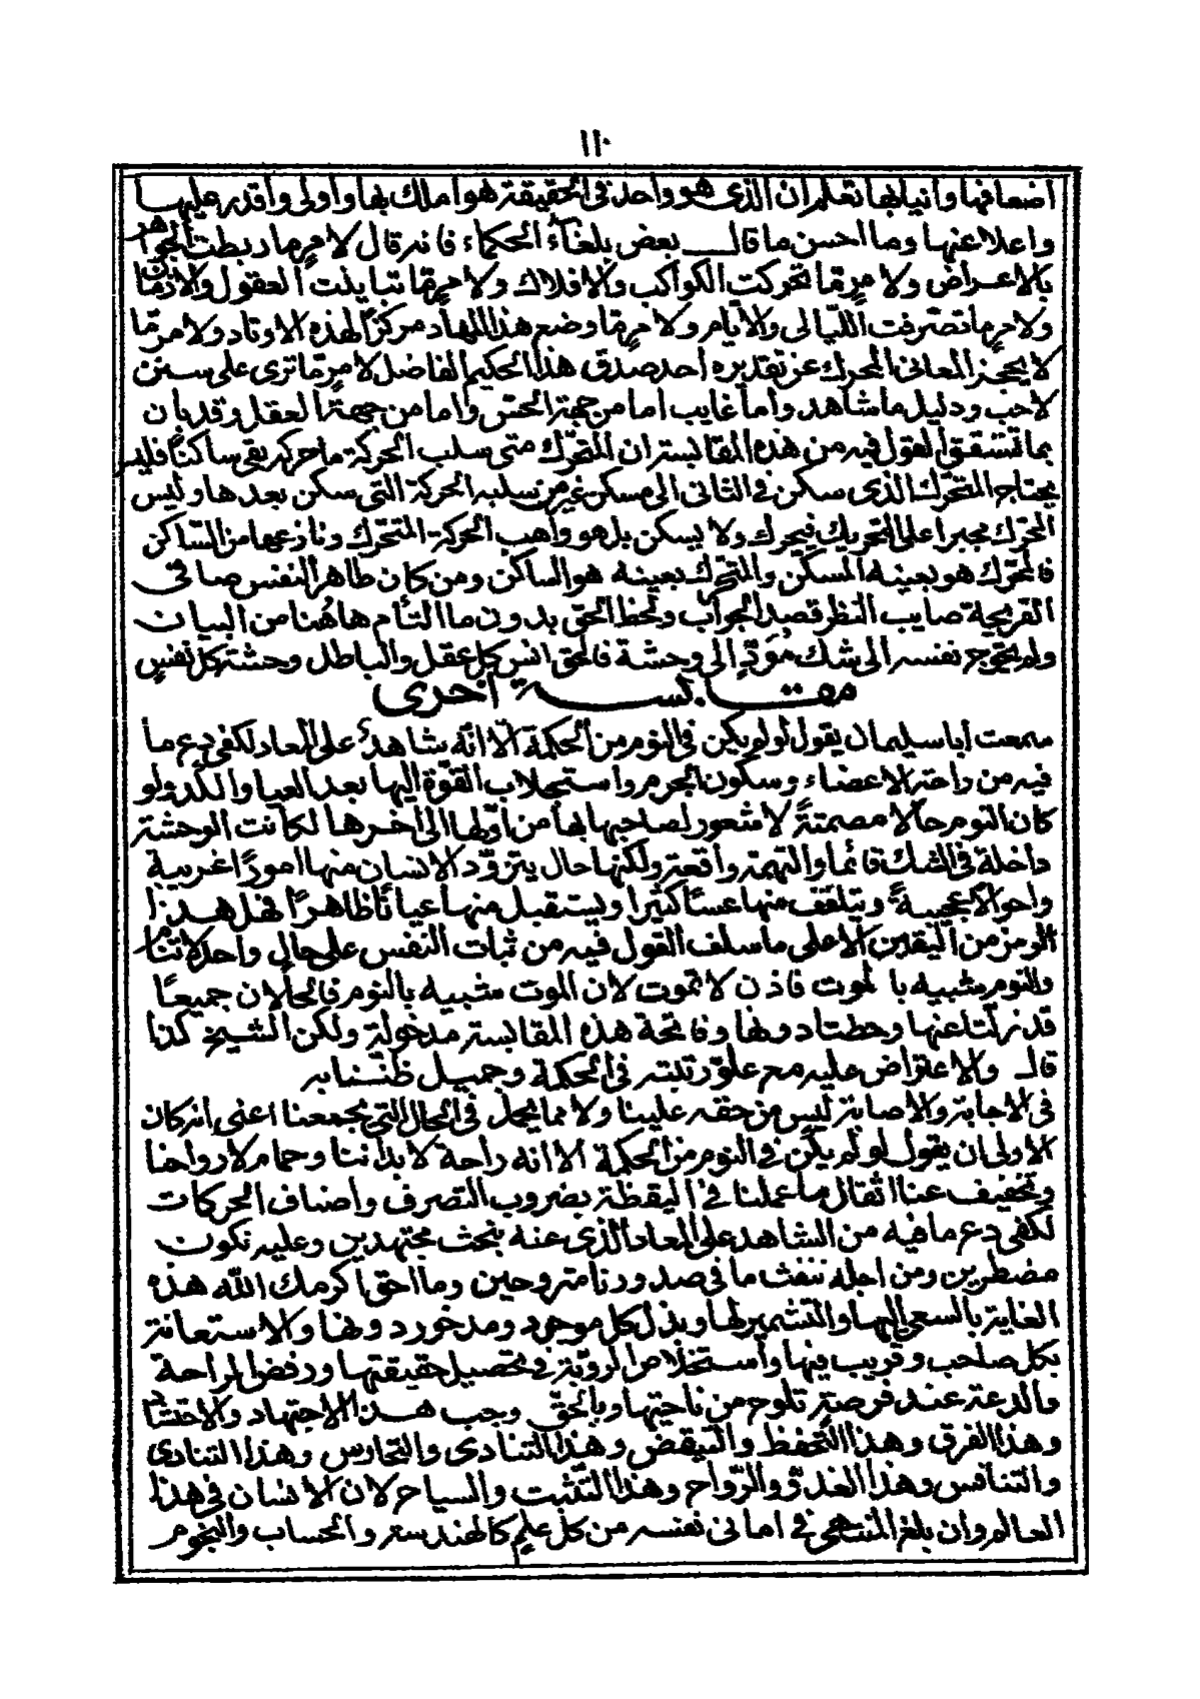 ١١٠
اضعافها وانيابها تعلم ان الذى هو واحد فى الحقيقة هو املك بها واولى واقدر عليها
واعلا عنها وما احسن ما قال بعض بلغاء الحكماء فانه قال لامرٍ ما ربطت الجواهر
بالاعراض ولا مرٍمّا تحركت الكواكب والافلاك ولامرٍمّا تباينت العقول والاذهان
ولامرٍما تصرفت الليالى والايام ولامرٍمّا وضع هذا المهاد مركزًا لهذه الاوتاد ولامرمّا
لا يحجز المعانى المحرك عن تقديره احد صدق هذا الحكيم الفاضل لامرٍمّا ترى على سنن
لاحب ودليل ما شاهد واما غايب اما من جهة الحسّ واما من جهة العقل وقد بان
بما تشقق القول فيه من هذه المقابسة ان المتحرّك متى سلب الحركة ما حركه بقى ساكنًا فليس
يحتاج المتحرّك الذى سكن فى الثانى الى مسكن غير من سلبه الحركة التى سكن بعدها وليس
المحرّك مجبرا على التحريك فيحرك ولا يسكن بل هو واهب الحركة المتحرّك ونازعها من السّاكن
فالمحرّك هو بعينه المسكّن والمتحرّك بعينه هو الساكن ومن كان طاهر النفس صافى
القريحة صايب النظر قصد الجواب ولحظ الحقّ بدون ما التأم هاهُنا من البيان
ولم يحوج نفسه الى شك مُؤدٍّ الى وحشة فالحق انس كل عقل والباطل وحشة كل نفسٍ
مقابسة اخرى
سمعت أبا سليمان يقول لو لم يكن فى النوم من الحكمة الّا انّه شاهدٌ على المعاد لكفى دع ما
فيه من راحة الاعضاء وسكون الجرم واستجلاب القوّة اليها بعد العيا والكد ولو
كان النوم حالا مصمتةً لا شعور لصاحبها بها من اوّلها الى اخرها لكانت الوحشة
داخلة فى الشك قائما والتهمة واقعة ولكنها حال يتزوّد الانسان منها امورًا غريبة
واحوالا عجيبةً ويتلقف منها كثيرا ويستقبل منها عيانًا ظاهرًا فهل هذا
الرمز من اليقين الا على ما سلف القول فيه من ثبات النفس على حالٍ واحدة لاتنام
والنوم شبيه بالموت فاذن لا تموت لان الموت شبيه بالنوم فالحالان جميعًا
قد نزلتا عنها وحطتا دونها وفاتحة هذه المقابسة مدخولة ولكن الشيخ كذا
قال والاعتراض عليه مع علوّ رتبته فى الحكمة وجميل ظنّنا به
فى الاجابة والاصابة ليس من حقه علينا ولا مما يجمل فى الحال التى تجمعنا اعنى انه كان
الاولى ان يقول لو لم يكن فى النوم من الحكمة الا انه راحة لابداننا وجمام لارواحنا
وتخفيف عنا اثقال ما عملنا فى اليقظة بضروب التصرف واصناف الحركات
لكفى دع ما فيه من الشاهد على المعاد الذى عنه نبحث مجتهدين وعليه نكون
مضطرين ومن اجله ننفث ما فى صدورنا متروحين وما احق اكرمك الله هذه
الغاية بالسعى اليها والتشمير لها وبذل كل موجود ومدخور دونها والاستعانة
بكل صاحب وقريب فيها واستخلاص الرويّة فى تحصيل حقيقتها ورفض الراحة
والدعة عند فرصةٍ تلوح من ناحيتها وبالحقّ وجب هذا الاجتهاد والاحتشاد
وهذا الفرق وهذا التحفظ والتيقض وهذا التنادى والتحارس وهذا التنادى
والتنافس وهذا الغدوّ والرّواح وهذا التّثبت والسياح لان الانسان فى هذا
العالم وان بلغ المنتهى فى امانى نفسه من كل علمٍ كالهندسة والحساب والنجوم